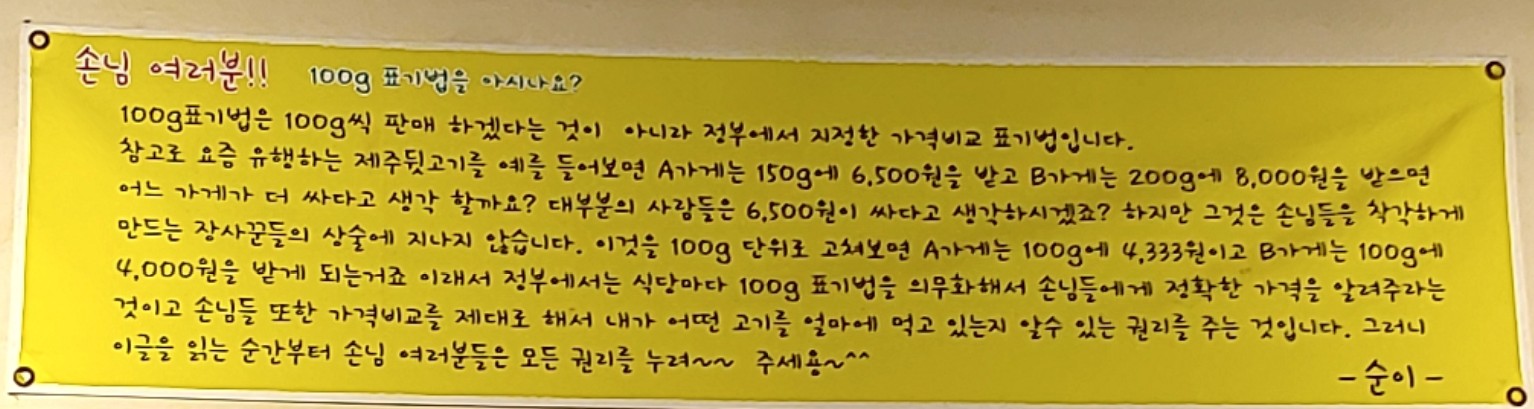 손님 여러분!! 100g 표기법을 아시나요?
100g표기법은 100g씩 판매 하겠다는 것이 아니라 정부에서 지정한 가격비교 표기법입니다.
참고로 요즘 유행하는 제주뒷고기를 예를 들어보면 A가게는 150g에 6,500원을 받고 B가게는 200g에 8,000원을 받으면
어느 가게가 더 싸다고 생각 할까요? 대부분의 사람들은 6,500원이 싸다고 생각하시겠죠? 하지만 그것은 손님들을 착각하게
만드는 장사꾼들의 상술에 지나지 않습니다. 이것을 100g 단위로 고쳐보면 A가게는 100g에 4,333원이고 B가게는 100g에
4,000원을 받게 되는거죠 이래서 정부에서는 식당마다 100g 표기법을 의무화해서 손님들에게 정확한 가격을 알려주라는
것이고 손님들 또한 가격비교를 제대로 해서 내가 어떤 고기를 얼마에 먹고 있는지 알수 있는 권리를 주는 것입니다. 그러니
이글을 읽는 순간부터 손님 여러분들은 모든 권리를 누려~~ 주세용~^^
- 순이 -